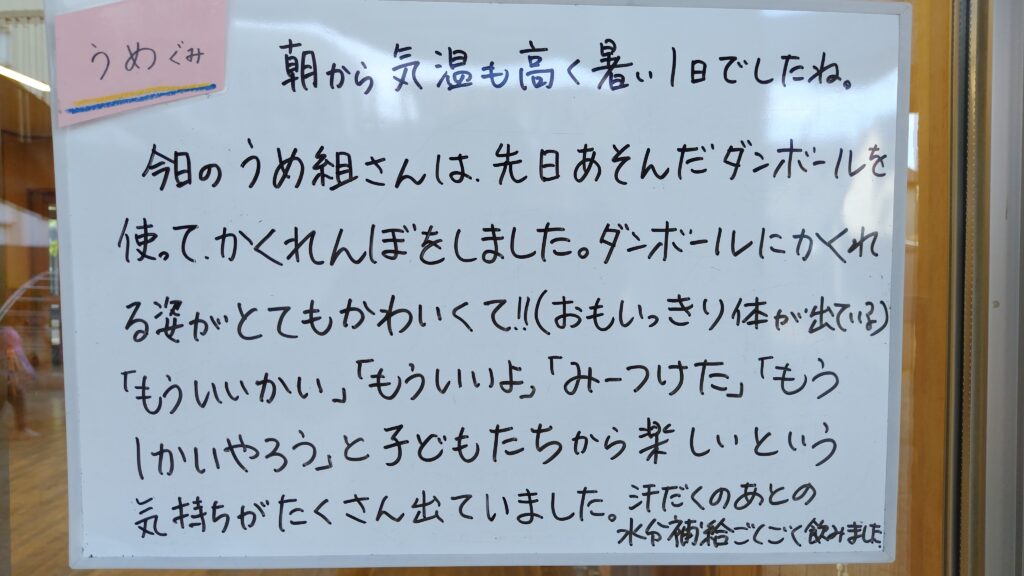 うめぐみ
朝から気温も高く暑い1日でしたね。
今日のうめ組さんは、先日あそんだダンボールを
使って、かくれんぼをしました。ダンボールにかくれ
る姿がとてもかわいくて!!(おもいっきり体が出ている)
「もういいかい」「もういいよ」「みーつけた」「もう
1かいやろう」と子どもたちから楽しいという
気持ちがたくさん出ていました。汗だくのあとの
水分補給ごくごく飲みました